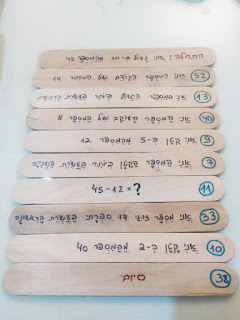 התחלה: אני גדול ב-10 מהמספר 42
52 אני המספר הקודם של המספר 14
13 אני המספר הגדול ביותר בעשרת הרביעית
40 אני המספר העוקב של המספר 8
9 אני קטן ב-5 מהמספר 12
7 אני המספר הקטן ביותר בעשרת השנייה
11 45-12=?
33 אני מספר זוגי דו ספרתי בעשרת הראשונה
10 אני קטן ב-2 מהמספר 40
38 סיום